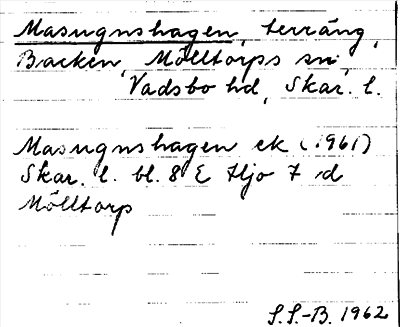 Masugnshagen, terräng,
Backen, Mölltorps sn,
Vadsbo hd, Skar. l.
Masugnshagen ek (1961)
Skar. l. bl. 8 E Hjo 7 d
Mölltorp
S.S.-B. 1962